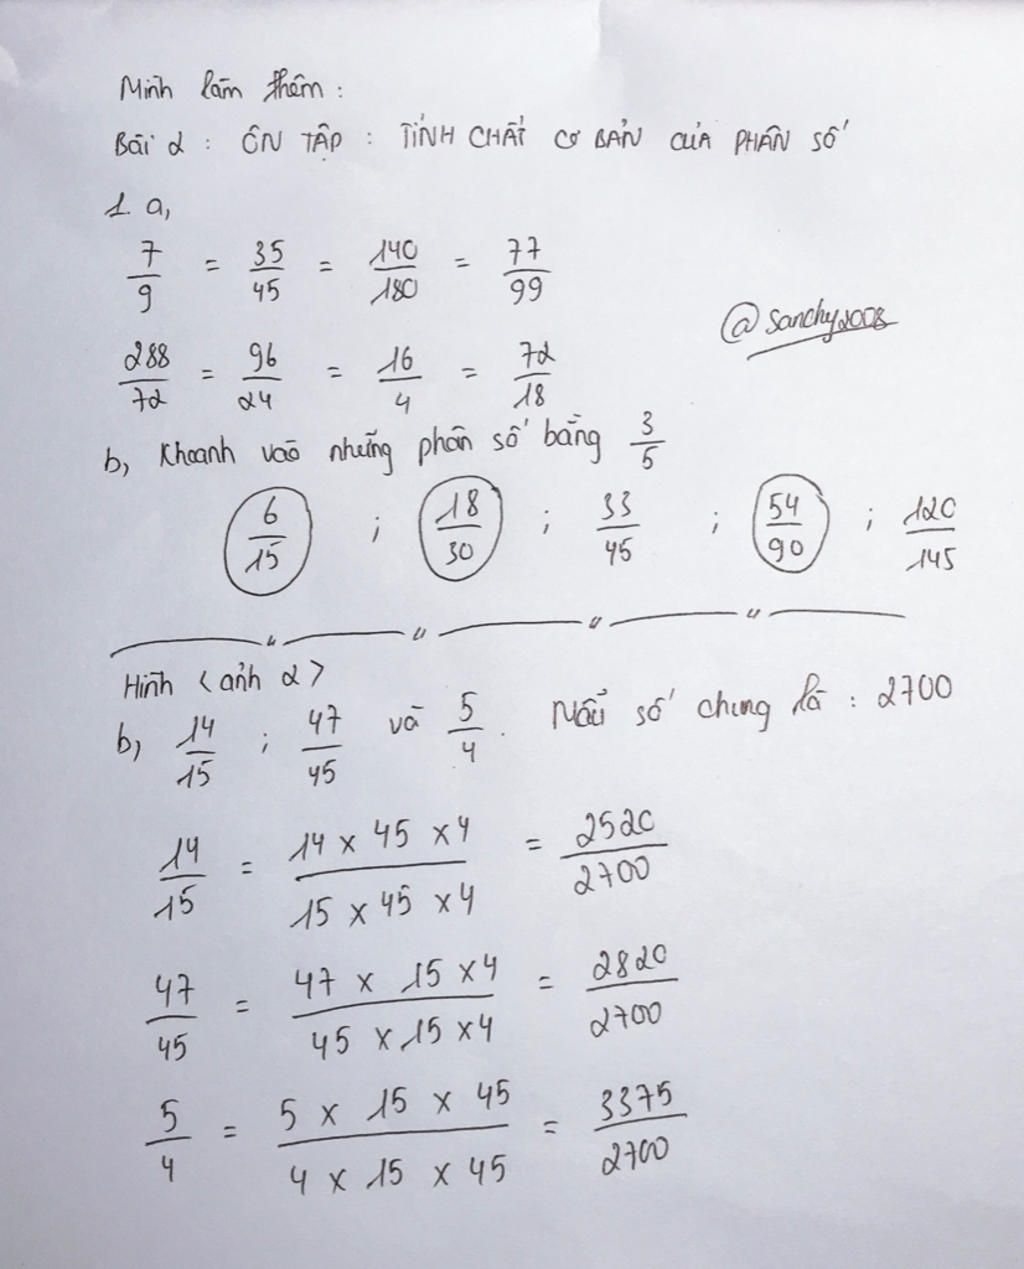 Mình làm thêm :
Bài 2 : ÔN TẬP : TÍNH CHẤT CƠ BẢN CỦA PHÂN SỐ
1. a,
7/9 = 35/45 = 140/180 = 77/99
@sanchy2008
288/72 = 96/24 = 16/4 = 72/18
b, Khoanh vào những phân số bằng 3/5
6/15 ; 18/30 ; 33/45 ; 54/90 ; 120/145
Hình <ảnh 2>
b, 14/15 ; 47/45 và 5/4. Mẫu số chung là : 2700
14/15 = 14 x 45 x 4 / 15 x 45 x 4 = 2520/2700
47/45 = 47 x 15 x 4 / 45 x 15 x 4 = 2820/2700
5/4 = 5 x 15 x 45 / 4 x 15 x 45 = 3375/2700